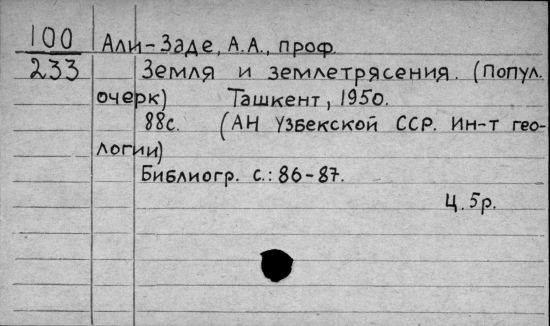 100 Али-Заде, А.А., проф.
233 Земля и землетрясения. (Попул.
очерк) Ташкент, 1950.
88с. (АН Узбекской ССР. Ин-т гео-
логии)
Библиогр. с.: 86-87.
Ц. 5р.